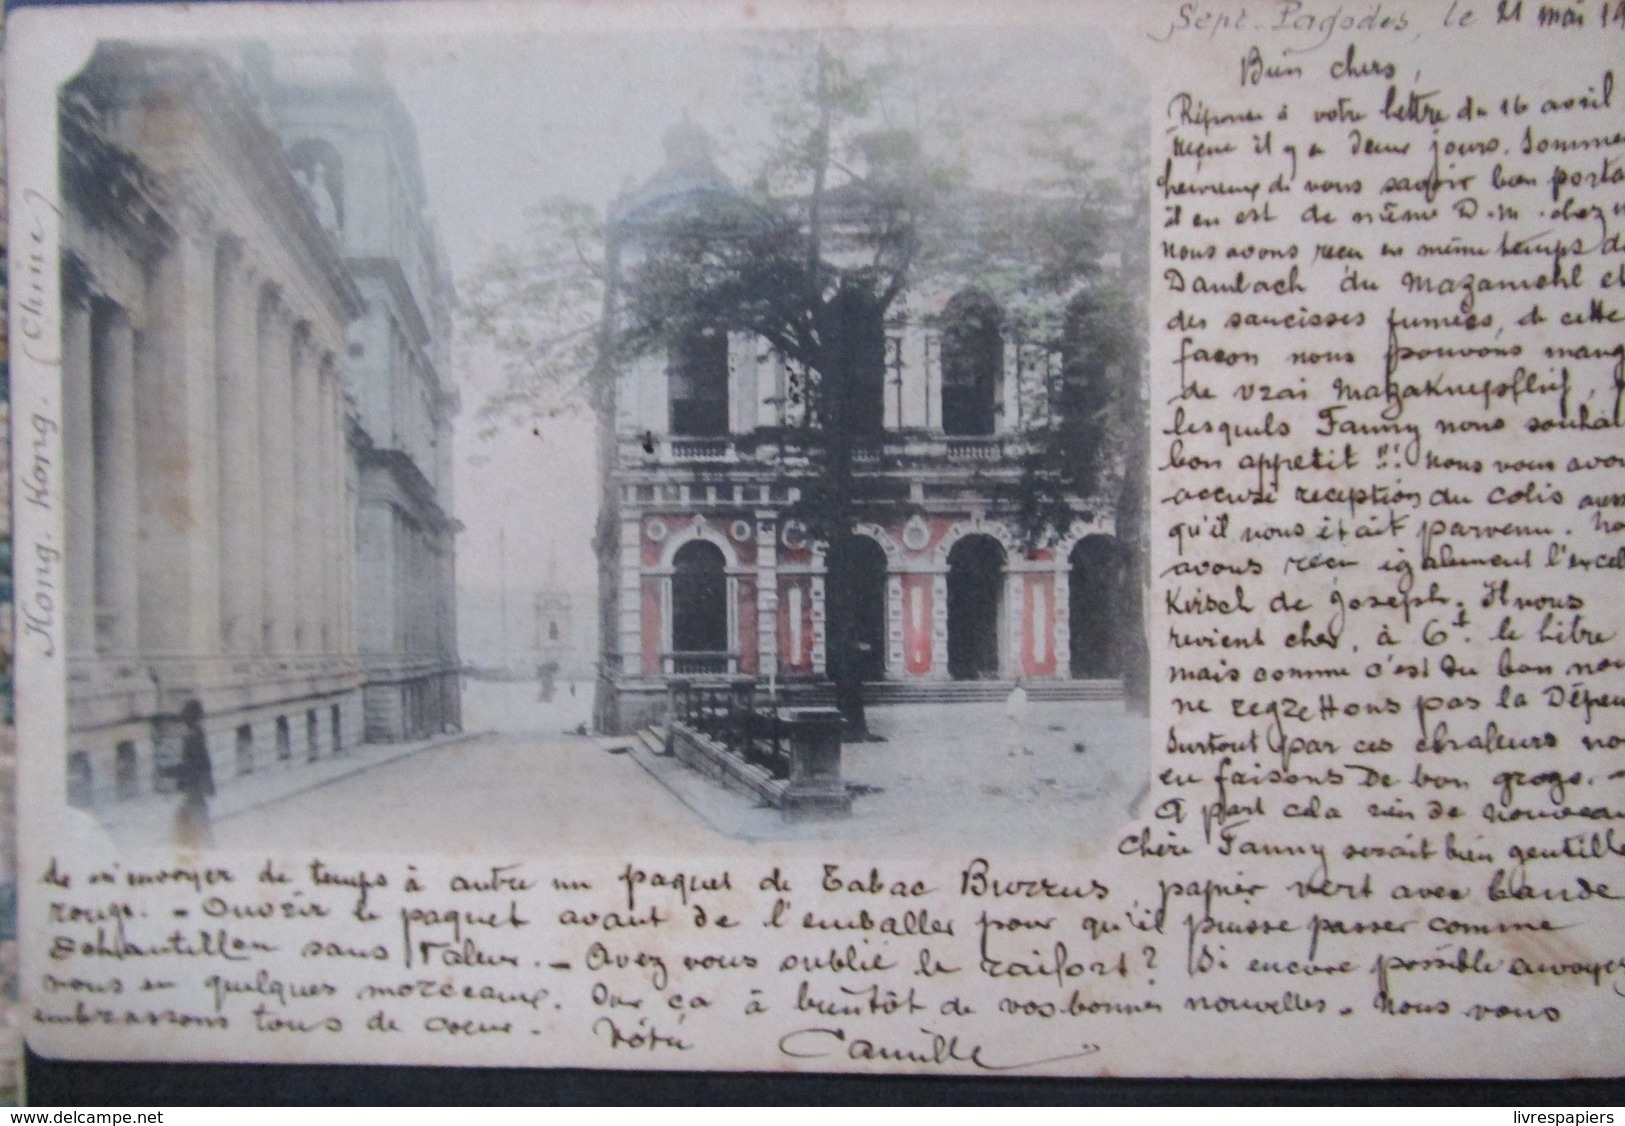 Sept-Pagodes, le 21 mai 19
Bien chers,
Réponse à votre lettre du 16 avril
reçue il y a deux jours. Sommes
heureux de vous savoir bien porta
il en est de même D.m. chez n
nous avons reçu en même temps de
Dambach du Mazamehl et
des saucisses fumées, de cette
façon nous pouvons mang
de vrai Mazaknepflis,
lesquels Fanny nous souhai
bon appetit !!! Nous vous avon
accusé reception du colis auss
qu'il nous était parvenu. No
avous reçu également l'excel
Kirsch de Joseph. Il vous
revient cher, à 6 f. le litre
mais comme c'est du bon nou
ne regrettons pas la Dépen
surtout par ces chaleurs no
en faisons de bon grogs. -
A part cela rien de nouveau
Chère Fanny serait bien gentille
de m'envoyer de temps à autre un paquet de Tabac Burrus, papier vert avec bande
rouge. - Ouvrir le paquet avant de l'emballer pour qu'il puisse passer comme
Echantillon sans valeur. - Avez vous oublié le raifort? Si encore possible envoyez
nous en quelques morceaux. Sur ça à bientôt de vos bonnes nouvelles. Nous vous
embrassons tous de coeur. Vôtre Camille
Hong-Kong. (Chine)
delcampe.net
livrespapiers